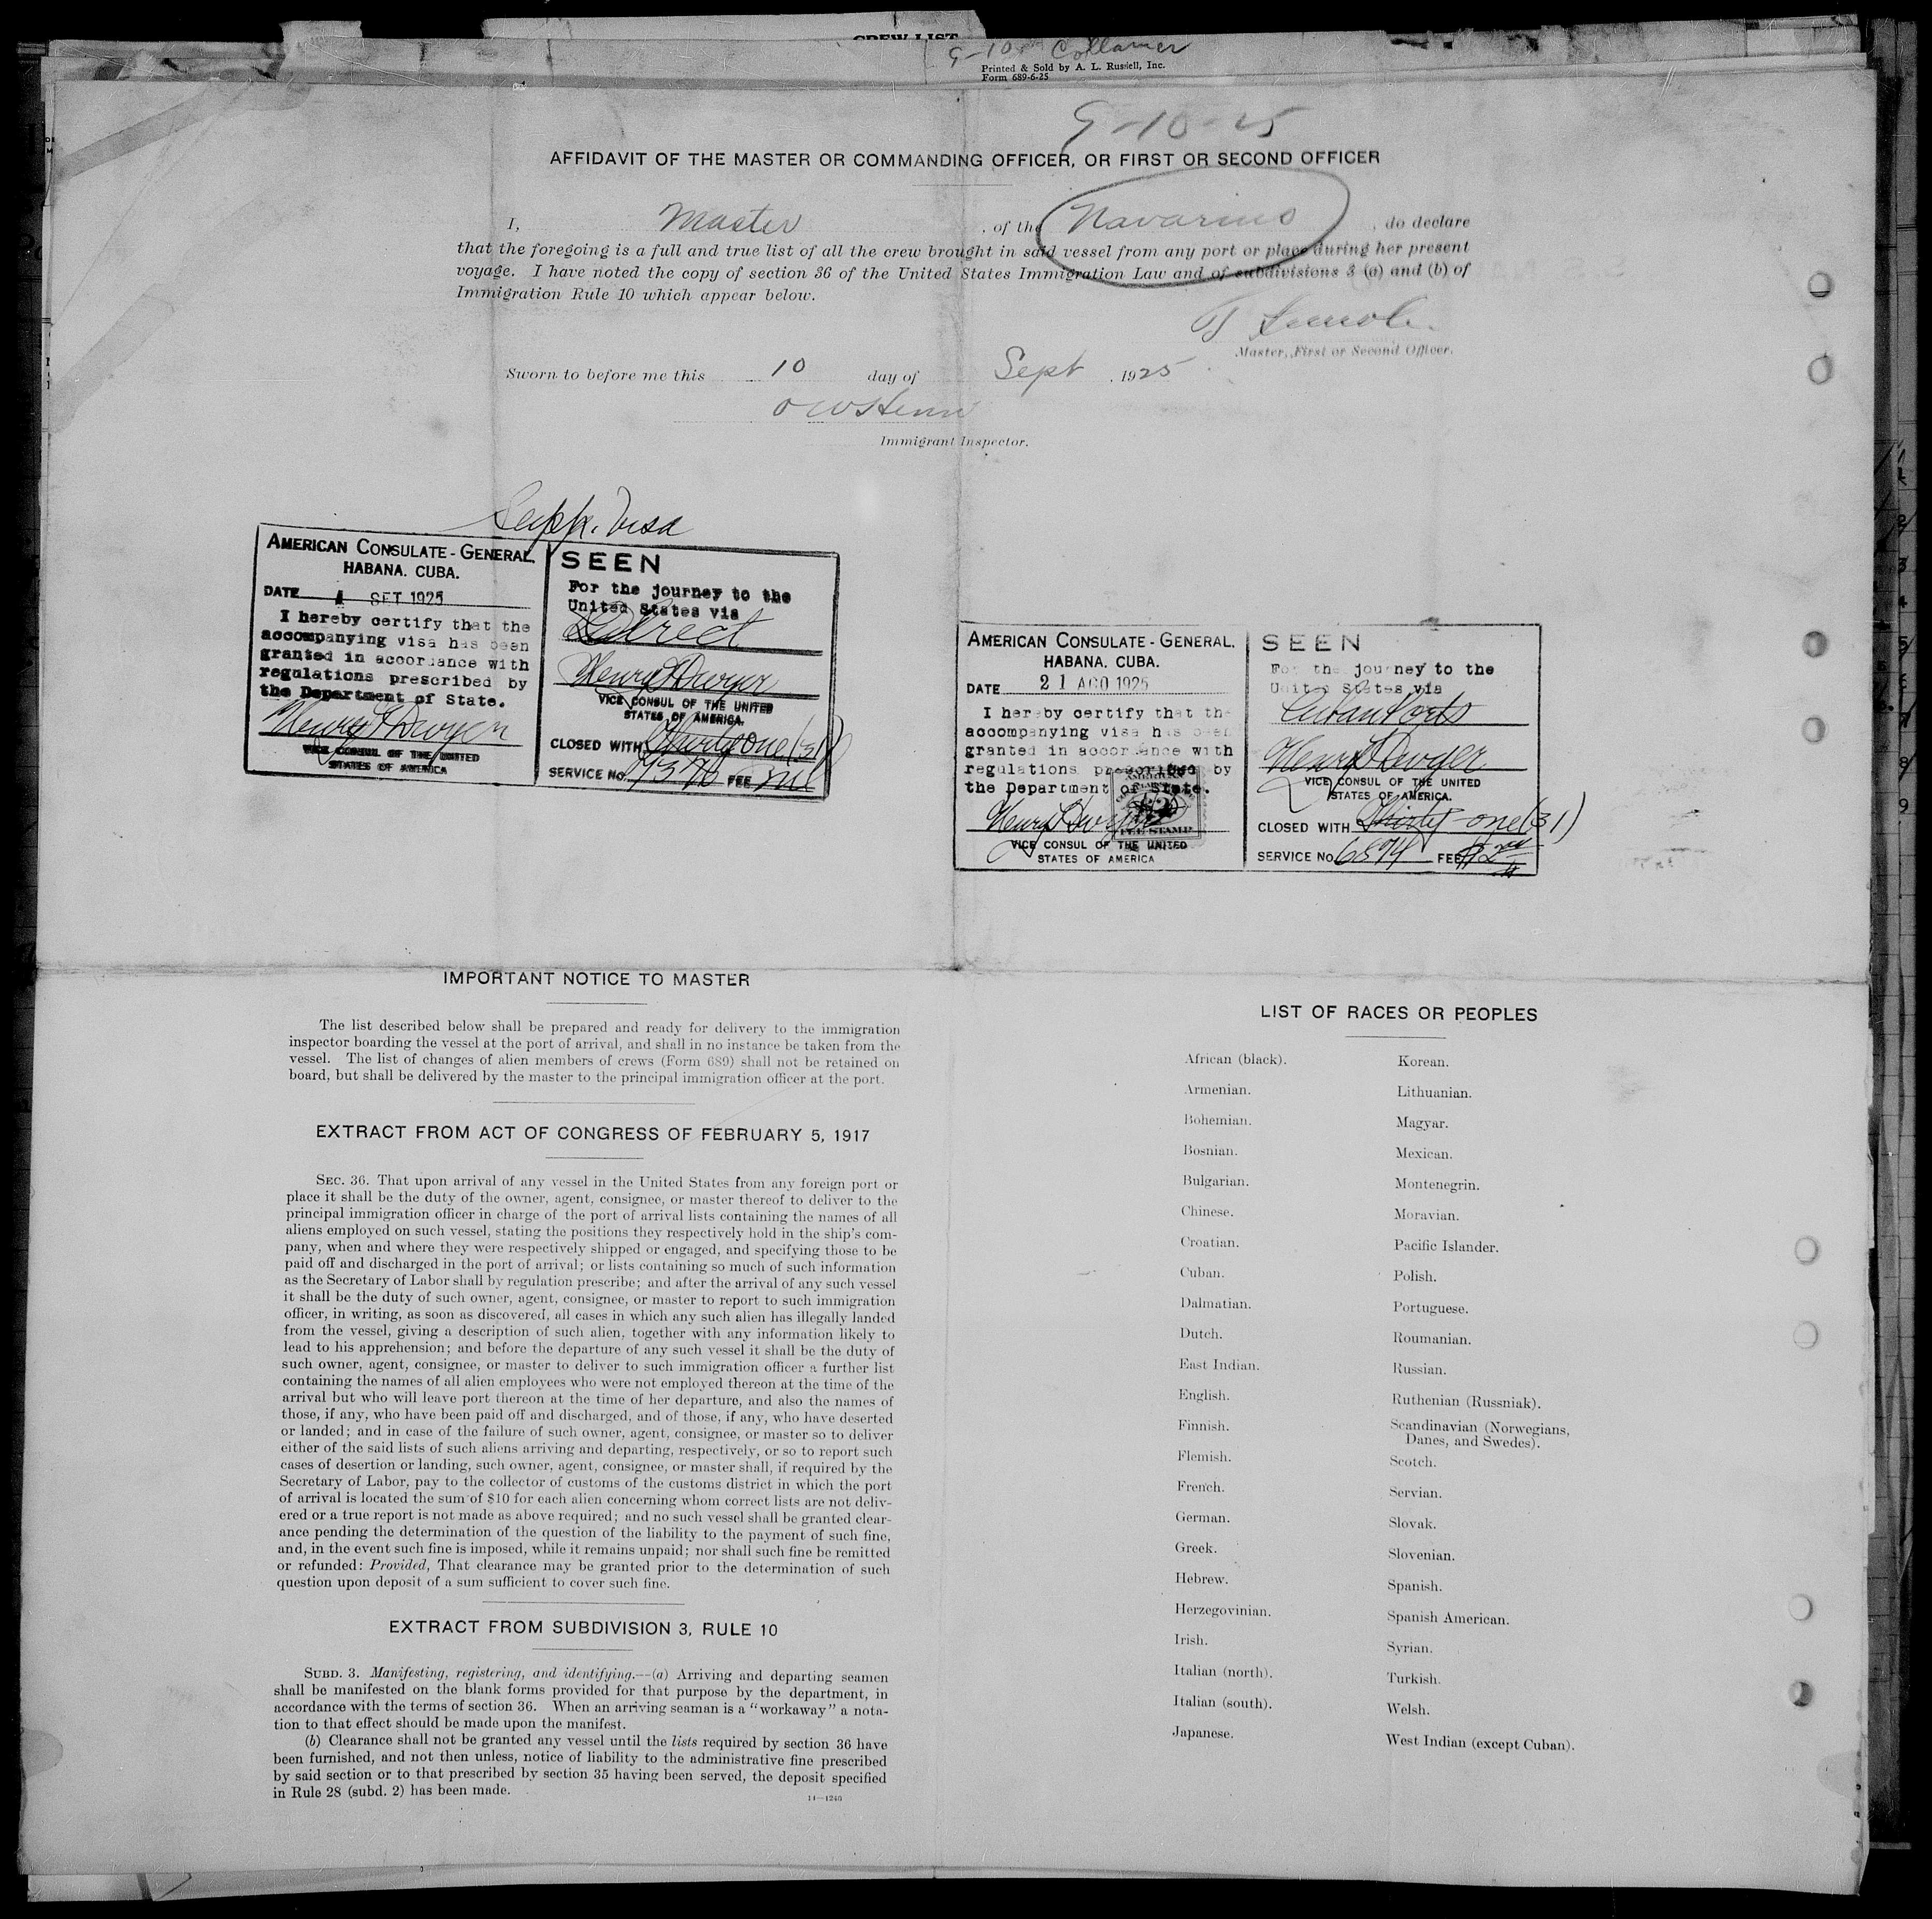 CREW LIST
9-10 Collamer
Printed & Sold by A. L. Russell, Inc.
Form 689-6-25
9-10-25
AFFIDAVIT OF THE MASTER OR COMMANDING OFFICER, OR FIRST OR SECOND OFFICER
I, Master, of the Navarino, do declare
that the foregoing is a full and true list of all the crew brought in said vessel from any port or place during her present
voyage. I have noted the copy of section 36 of the United States Immigration Law and of subdivisions 3 (a) and (b) of
Immigration Rule 10 which appear below.
Master, First or Second Officer.
Sworn to before me this 10 day of Sept, 1925
Immigrant Inspector.
Supp. Visa
AMERICAN CONSULATE-GENERAL.
HABANA. CUBA.
DATE 4 SET 1925
I hereby certify that the
accompanying visa has been
granted in accordance with
regulations prescribed by
the Department of State.
Henry T Dwyer
VICE CONSUL OF THE UNITED
STATES OF AMERICA
SEEN
For the journey to the
United States via
Direct
Henry T Dwyer
VICE CONSUL OF THE UNITED
STATES OF AMERICA.
CLOSED WITH Thirty one (31)
SERVICE No. 7376 FEE nil
AMERICAN CONSULATE-GENERAL.
HABANA. CUBA.
DATE 21 AGO 1925
I hereby certify that the
accompanying visa has been
granted in accordance with
regulations prescribed by
the Department of State.
Henry T Dwyer
VICE CONSUL OF THE UNITED
STATES OF AMERICA
AMERICAN
$2
FEE STAMP
SEEN
For the journey to the
United States via
Cuban Ports
Henry T Dwyer
VICE CONSUL OF THE UNITED
STATES OF AMERICA.
CLOSED WITH Thirty-one (31)
SERVICE No. 6874 FEE $2
IMPORTANT NOTICE TO MASTER
The list described below shall be prepared and ready for delivery to the immigration
inspector boarding the vessel at the port of arrival, and shall in no instance be taken from the
vessel. The list of changes of alien members of crews (Form 689) shall not be retained on
board, but shall be delivered by the master to the principal immigration officer at the port.
EXTRACT FROM ACT OF CONGRESS OF FEBRUARY 5, 1917
SEC. 36. That upon arrival of any vessel in the United States from any foreign port or
place it shall be the duty of the owner, agent, consignee, or master thereof to deliver to the
principal immigration officer in charge of the port of arrival lists containing the names of all
aliens employed on such vessel, stating the positions they respectively hold in the ship's com-
pany, when and where they were respectively shipped or engaged, and specifying those to be
paid off and discharged in the port of arrival; or lists containing so much of such information
as the Secretary of Labor shall by regulation prescribe; and after the arrival of any such vessel
it shall be the duty of such owner, agent, consignee, or master to report to such immigration
officer, in writing, as soon as discovered, all cases in which any such alien has illegally landed
from the vessel, giving a description of such alien, together with any information likely to
lead to his apprehension; and before the departure of any such vessel it shall be the duty of
such owner, agent, consignee, or master to deliver to such immigration officer a further list
containing the names of all alien employees who were not employed thereon at the time of the
arrival but who will leave port thereon at the time of her departure, and also the names of
those, if any, who have been paid off and discharged, and of those, if any, who have deserted
or landed; and in case of the failure of such owner, agent, consignee, or master so to deliver
either of the said lists of such aliens arriving and departing, respectively, or so to report such
cases of desertion or landing, such owner, agent, consignee, or master shall, if required by the
Secretary of Labor, pay to the collector of customs of the customs district in which the port
of arrival is located the sum of $10 for each alien concerning whom correct lists are not deliv-
ered or a true report is not made as above required; and no such vessel shall be granted clear-
ance pending the determination of the question of the liability to the payment of such fine,
and, in the event such fine is imposed, while it remains unpaid; nor shall such fine be remitted
or refunded: Provided, That clearance may be granted prior to the determination of such
question upon deposit of a sum sufficient to cover such fine.
EXTRACT FROM SUBDIVISION 3, RULE 10
SUBD. 3. Manifesting, registering, and identifying.—(a) Arriving and departing seamen
shall be manifested on the blank forms provided for that purpose by the department, in
accordance with the terms of section 36. When an arriving seaman is a "workaway" a nota-
tion to that effect should be made upon the manifest.
(b) Clearance shall not be granted any vessel until the lists required by section 36 have
been furnished, and not then unless, notice of liability to the administrative fine prescribed
by said section or to that prescribed by section 35 having been served, the deposit specified
in Rule 28 (subd. 2) has been made.
14—1240
LIST OF RACES OR PEOPLES
African (black).
Armenian.
Bohemian.
Bosnian.
Bulgarian.
Chinese.
Croatian.
Cuban.
Dalmatian.
Dutch.
East Indian.
English.
Finnish.
Flemish.
French.
German.
Greek.
Hebrew.
Herzegovinian.
Irish.
Italian (north).
Italian (south).
Japanese.
Korean.
Lithuanian.
Magyar.
Mexican.
Montenegrin.
Moravian.
Pacific Islander.
Polish.
Portuguese.
Roumanian.
Russian.
Ruthenian (Russniak).
Scandinavian (Norwegians,
Danes, and Swedes).
Scotch.
Servian.
Slovak.
Slovenian.
Spanish.
Spanish American.
Syrian.
Turkish.
Welsh.
West Indian (except Cuban).